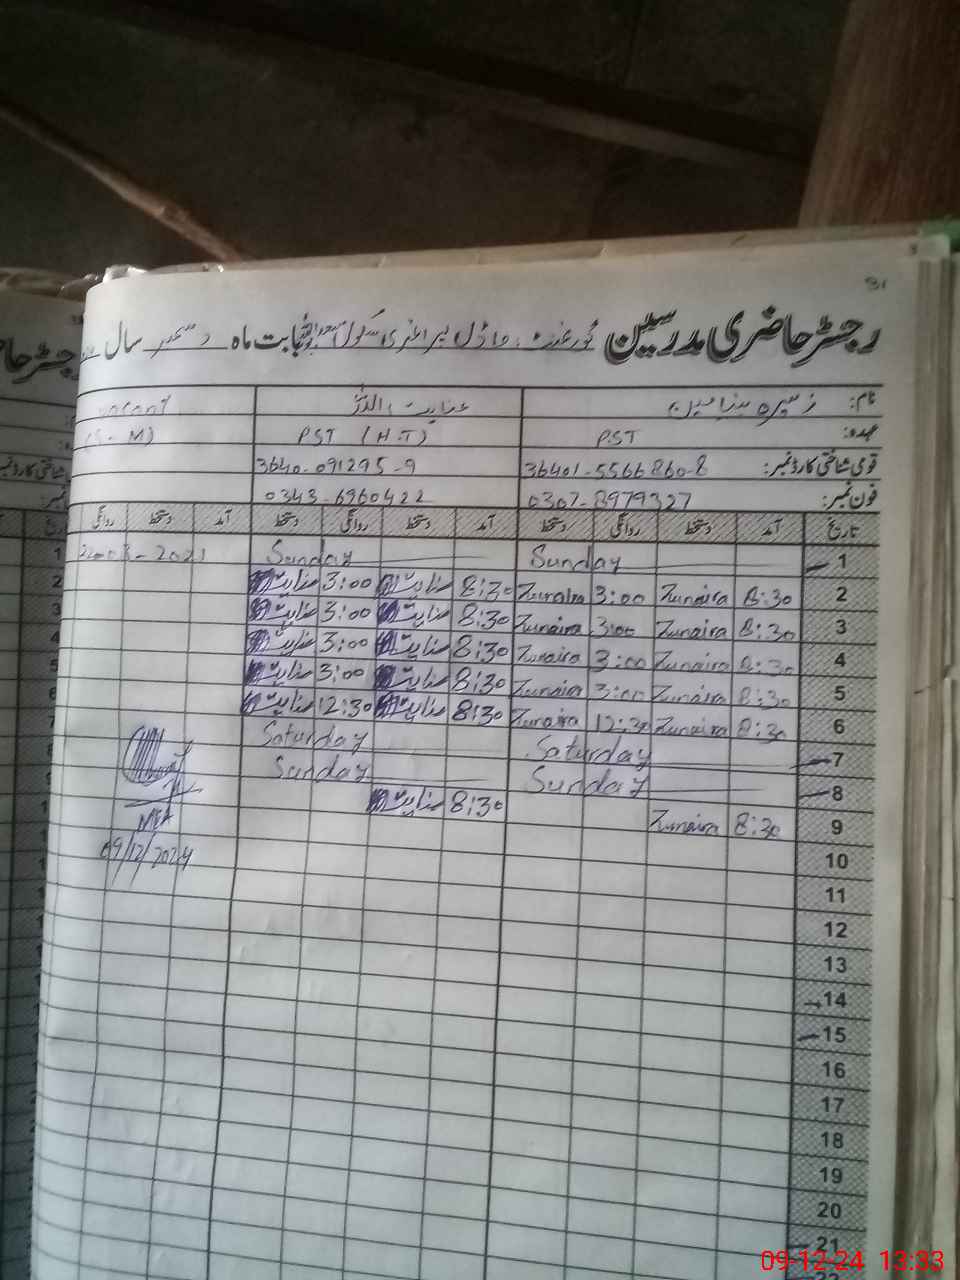 31
رجسٹر حاضری مدرسین گورنمنٹ ماڈل پرائمری سکول بابت ماہ دسمبر سال
نام: زنیرہ عنایت اللہ vacant
عہدہ: PST PST (H.T) (S-M)
قومی شناختی کارڈ نمبر: 36401-5566860-8 3640-091295-9
فون نمبر: 0307-8979327 0343-6960422
تاریخ آمد دستخط روانگی دستخط آمد دستخط روانگی دستخط آمد دستخط روانگی
1 Sunday Sunday
2 8:30 Zunaira 3:00 Zunaira 8:30 عنایت 3:00 عنایت
3 8:30 Zunaira 3:00 Zunaira 8:30 عنایت 3:00 عنایت
4 8:30 Zunaira 3:00 Zunaira 8:30 عنایت 3:00 عنایت
5 8:30 Zunaira 3:00 Zunaira 8:30 عنایت 3:00 عنایت
6 8:30 Zunaira 12:30 Zunaira 8:30 عنایت 12:30 عنایت
7 Saturday Saturday
8 Sunday Sunday
9 8:30 Zunaira 8:30 عنایت
MEA
09/12/2024
10
11
12
13
14
15
16
17
18
19
20
21
09-12-24 13:33